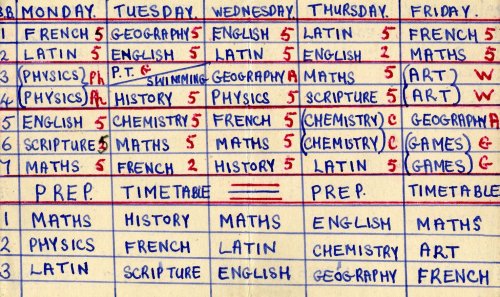 B.B MONDAY. TUESDAY. WEDNESDAY. THURSDAY. FRIDAY.
1 FRENCH 5 GEOGRAPHY 5 ENGLISH 5 LATIN 5 FRENCH 5
2 LATIN 5 ENGLISH 5 LATIN 5 ENGLISH 2 MATHS 5
3 (PHYSICS) Ph P.T. G SWIMMING GEOGRAPHY A MATHS 5 (ART) W
4 (PHYSICS) Ph HISTORY 5 PHYSICS 5 SCRIPTURE 5 (ART) W
5 ENGLISH 5 CHEMISTRY 5 FRENCH 5 (CHEMISTRY) C GEOGRAPHY A
6 SCRIPTURE 5 MATHS 5 MATHS 5 (CHEMISTRY) C (GAMES) G
7 MATHS 5 FRENCH 2 HISTORY 5 LATIN 5 (GAMES) G
PREP. TIMETABLE PREP. TIMETABLE
1 MATHS HISTORY MATHS ENGLISH MATHS
2 PHYSICS FRENCH LATIN CHEMISTRY ART
3 LATIN SCRIPTURE ENGLISH GEOGRAPHY FRENCH